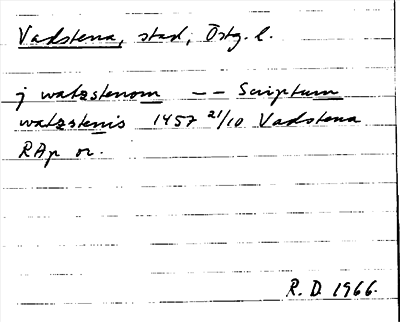 Vadstena, stad, Östg. l.
j watzstenom -- Scriptum
watzstenis 1457 21/10 Vadstena
RAp or.
R. D. 1966.